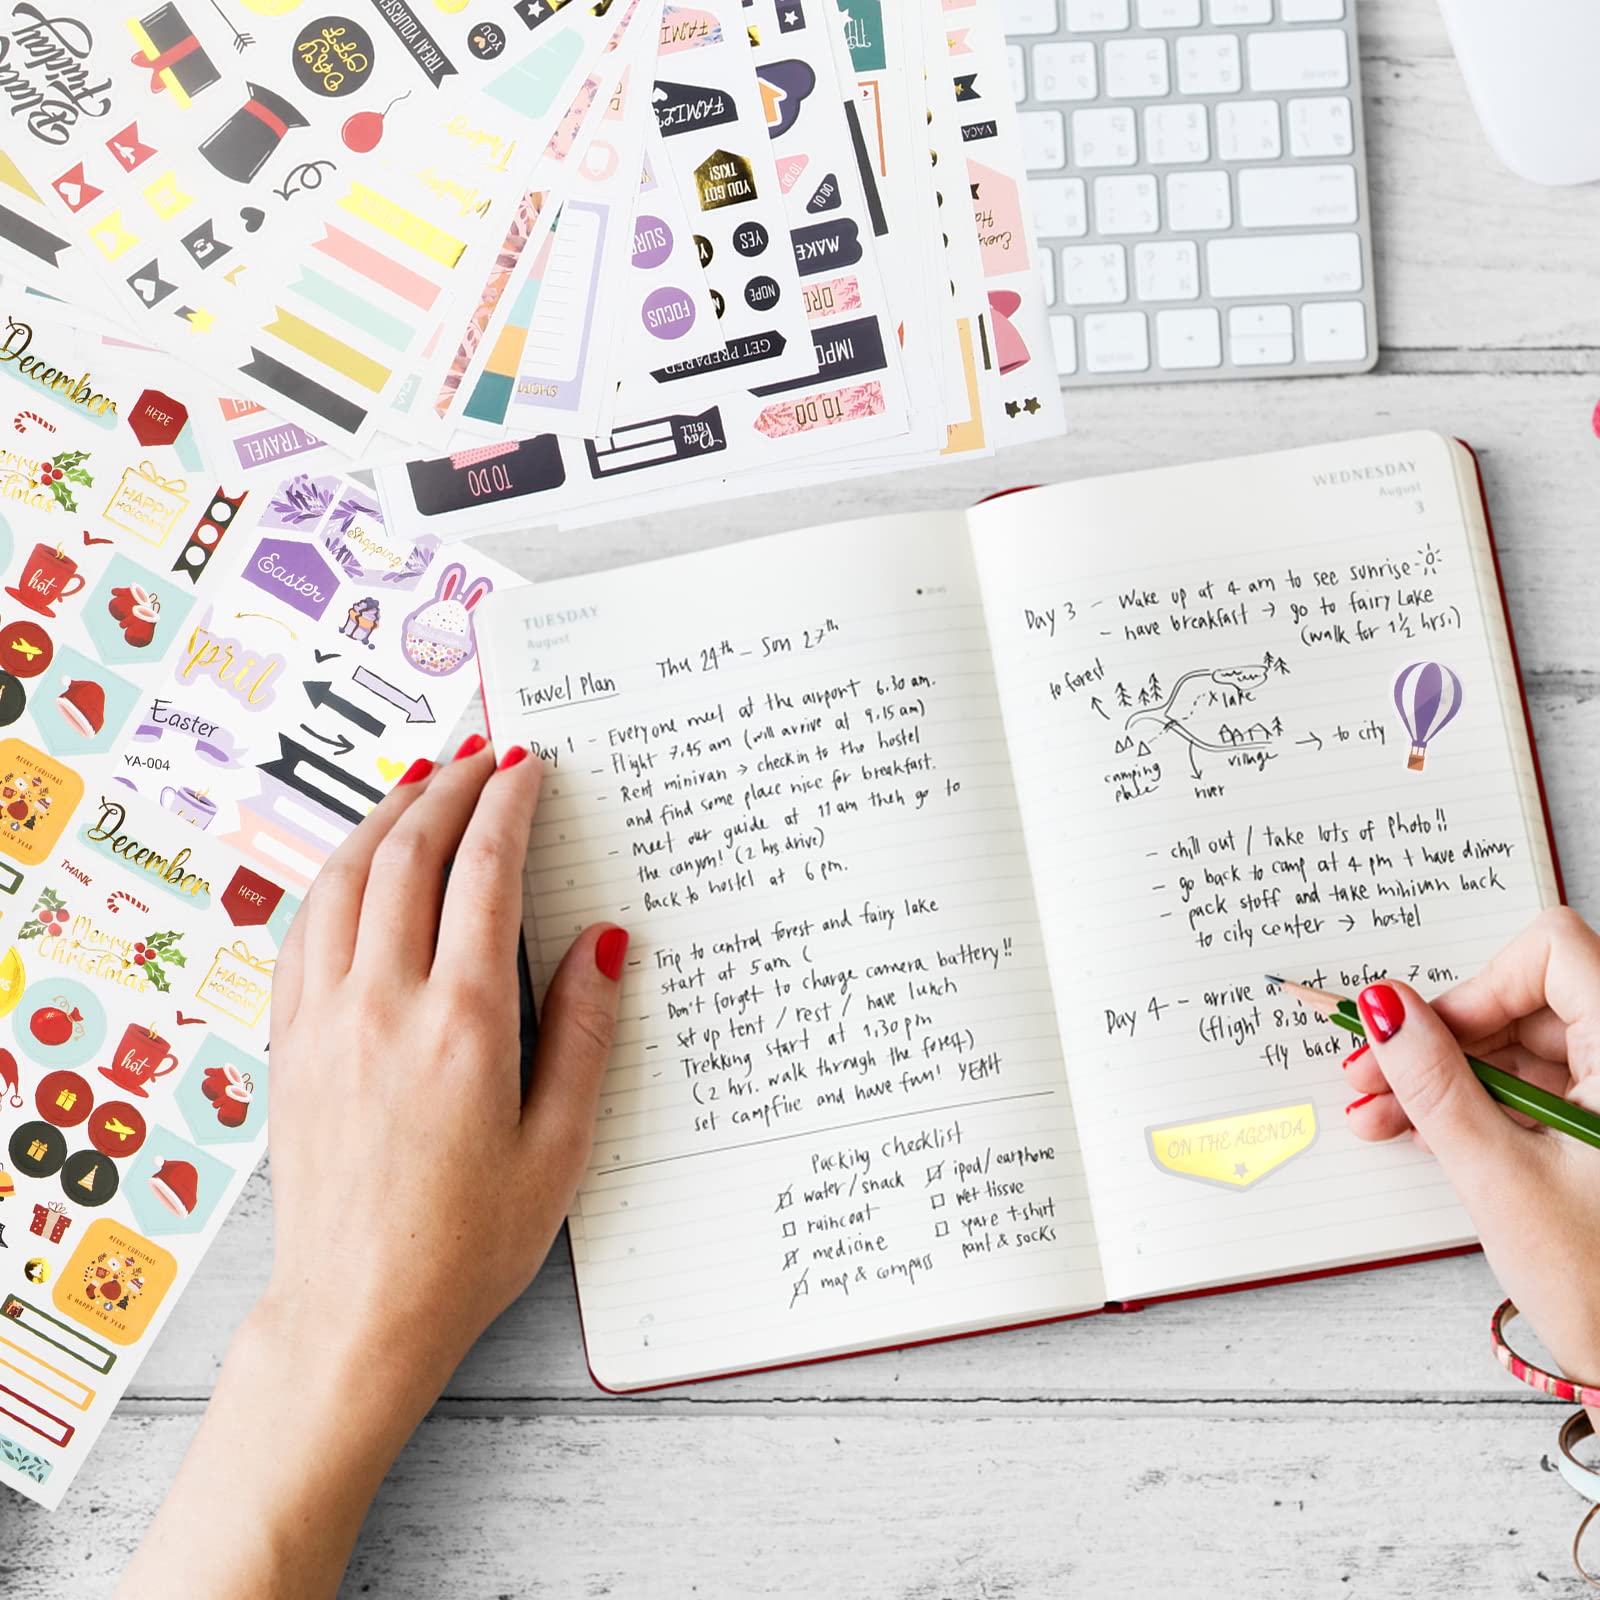 Black
Friday
DAY
OFF
TREAT YOURSELF
I
YOU
FAMILY
FAMILY
YOU GOT
THIS!
TO DO
TO DO
YES
MAKE
NOPE
FOCUS
GET PREPARED
TO DO
Pay
BILL
TO DO
VACA
delete
return
shift
December
HERE
TRAVEL
HAPPY
HOLIDAYS
hot
Shopping
Easter
April
Easter
YA-004
MERRY CHRISTMAS
NEW YEAR
December
THANK
HERE
Merry
Christmas
HAPPY
HOLIDAYS
hot
MERRY CHRISTMAS
& HAPPY NEW YEAR
TUESDAY
August
2
Travel Plan
Thu 24th - Sun 27th
Day 1 - Everyone meet at the airport 6.30 am.
- Flight 7.45 am (will arrive at 9.15 am)
- Rent minivan → check in to the hostel
and find some place nice for breakfast.
- Meet our guide at 11 am then go to
the canyon! (2 hrs. drive)
- Back to hostel at 6 pm.
- Trip to central forest and fairy lake
start at 5 am (
- Don't forget to charge camera battery!!
- set up tent / rest / have lunch
- Trekking start at 1.30 pm
(2 hrs. walk through the forest)
set campfire and have fun! YEAH
Packing Checklist
water/snack
raincoat
medicine
map & compass
ipod/earphone
wet tissue
spare t-shirt
pant & socks
WEDNESDAY
August
3
Day 3 - Wake up at 4 am to see sunrise
- have breakfast → go to fairy Lake
(walk for 1½ hrs.)
to forest
x lake
camping
place
river
village
to city
- chill out / take lots of photo!!
- go back to camp at 4 pm + have dinner
- pack stuff and take minivan back
to city center → hostel
Day 4 - arrive airport before 7 am.
(flight 8.30 a
fly back
ON THE AGENDA